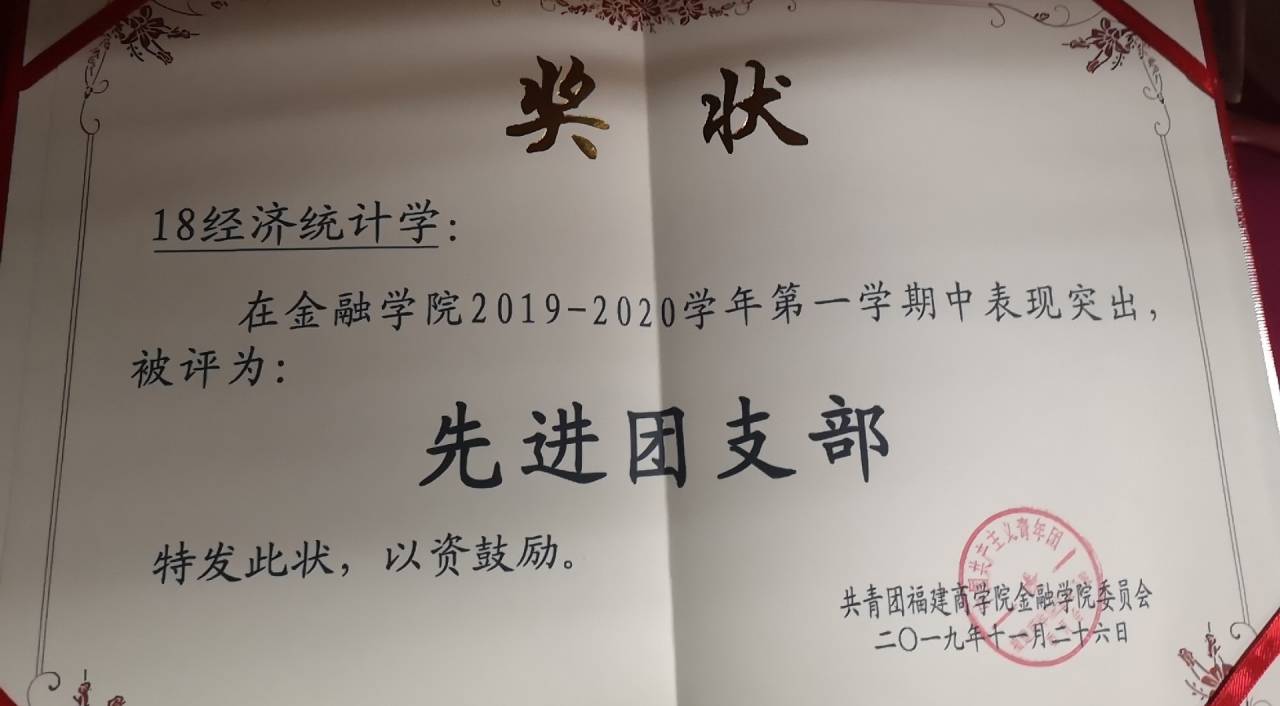 奖状
18经济统计学：
在金融学院2019-2020学年第一学期中表现突出，
被评为：
先进团支部
特发此状，以资鼓励。
共青团福建商学院金融学院委员会
二〇一九年十一月二十六日
国共产主义青年团